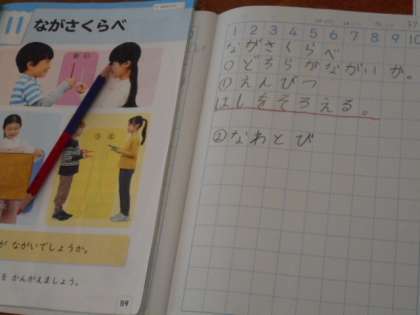 11 ながさくらべ
あ い
う え
が ながいでしょうか。
を かんがえましょう。
119
1 2 3 4 5 6 7 8 9 10
ながさくらべ
○どちらがながいか。
①えんぴつ
はしをそろえる。
②なわとび